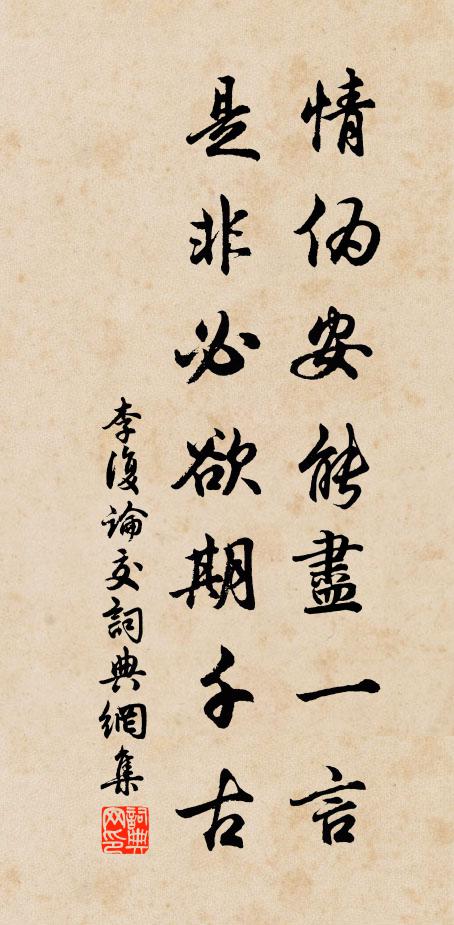 情偽安能盡一言
是非必欲期千古
李復論交詞典網集
詞典網印